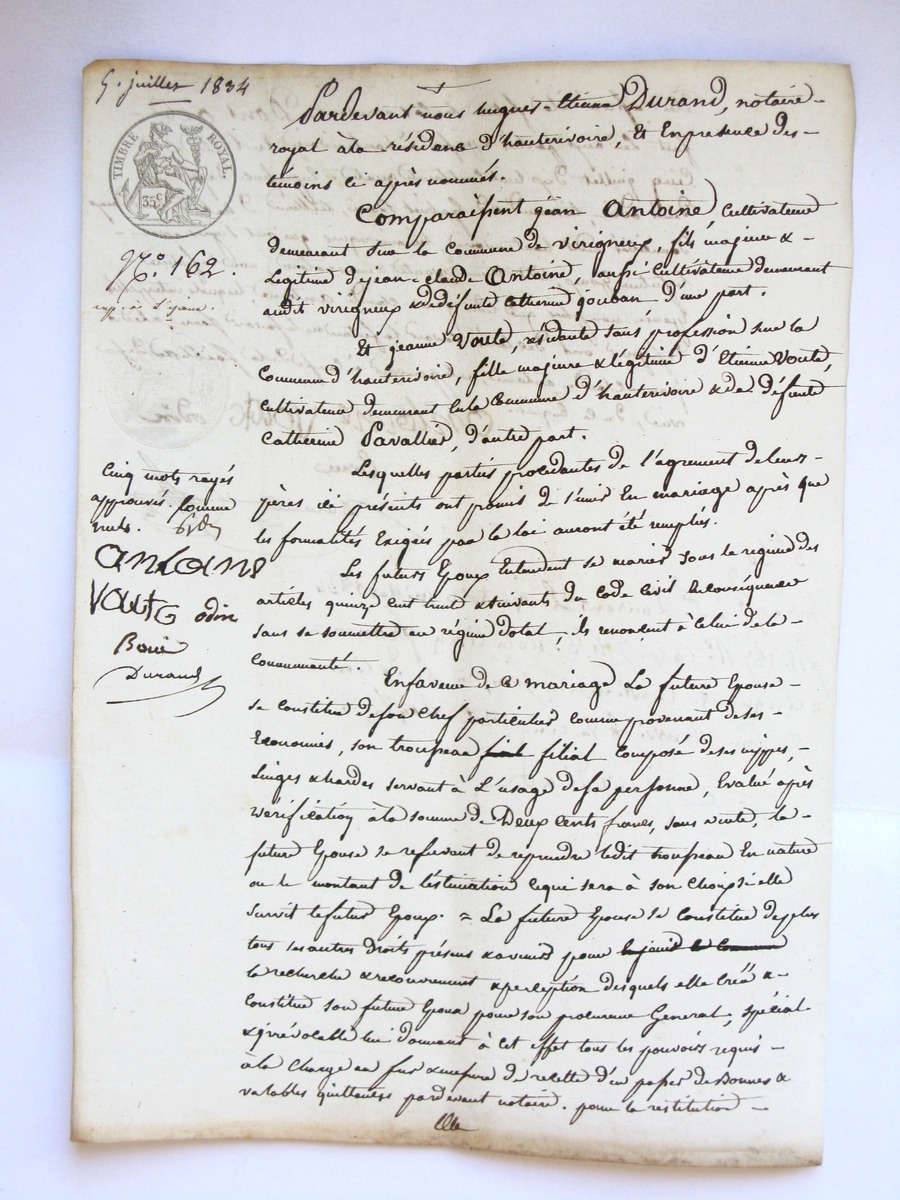 5. juillet 1834
TIMBRE ROYAL.
35 c
N.o 162.
Cinq mots rayés
approuvés comme
nuls.
antoine
Voute odin
Durand
Pardevant nous hugues-Etienne Durand, notaire
royal à la résidence d'hauterivoire, et En presence des
témoins ci après nommés.
Comparaissent jean Antoine, Cultivateur
demeurant sur la Commune de virigneux, fils majeur &
Legitime de jean-claude Antoine, aussi Cultivateur demeurant
audit virigneux & de défunte Catherine d'une part.
Et jeanne Voute, résidante sans profession sur la
Commune d'hauterivoire, fille majeure & légitime d'Etienne Voute,
Cultivateur demeurant En la Commune d'hauterivoire & de défunte
Catherine Pavallier, d'autre part.
Lesquelles parties procédantes de l'agrement de leurs
pères ici présents ont promis de s'unir En mariage après que
les formalités Exigées par la loi auront été remplies.
Les futurs Epoux Entendent se marier sous le regime des
articles quinze cent trente & suivants du Code Civil En conséquence
sans se soumettre au régime dotal, ils renoncent à celui de la
Communauté.
En faveur de ce mariage La future Epouse
se Constitue de son Chef particulier comme provenant de ses
Economies, son trousseau filial Composé de ses nippes,
Linges & hardes servant à L'usage de sa personne, Evalué après
vérification à la somme de Deux cents francs, sans vente, la
future Epouse se reservant de reprendre ledit trousseau En nature
ou le montant de l'estimation ce qui sera à son Choix si elle
survit le futur Epoux. = La future Epouse se Constitue de plus
tous ses autres droits présens & avenir pour
la recherche & recouvrement & perception desquels elle Créé &
Constitue son futur Epoux pour son procureur General, spécial
& irrévocable lui donnant à cet effet tous les pouvoirs requis
à la Charge au fur & mesure de recette d'en passer de Bonnes &
valables quittances pardevant notaire. pour la restitution